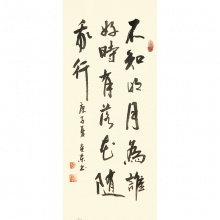 不知明月為誰
好時有落花隨
我行
庚子夏
書